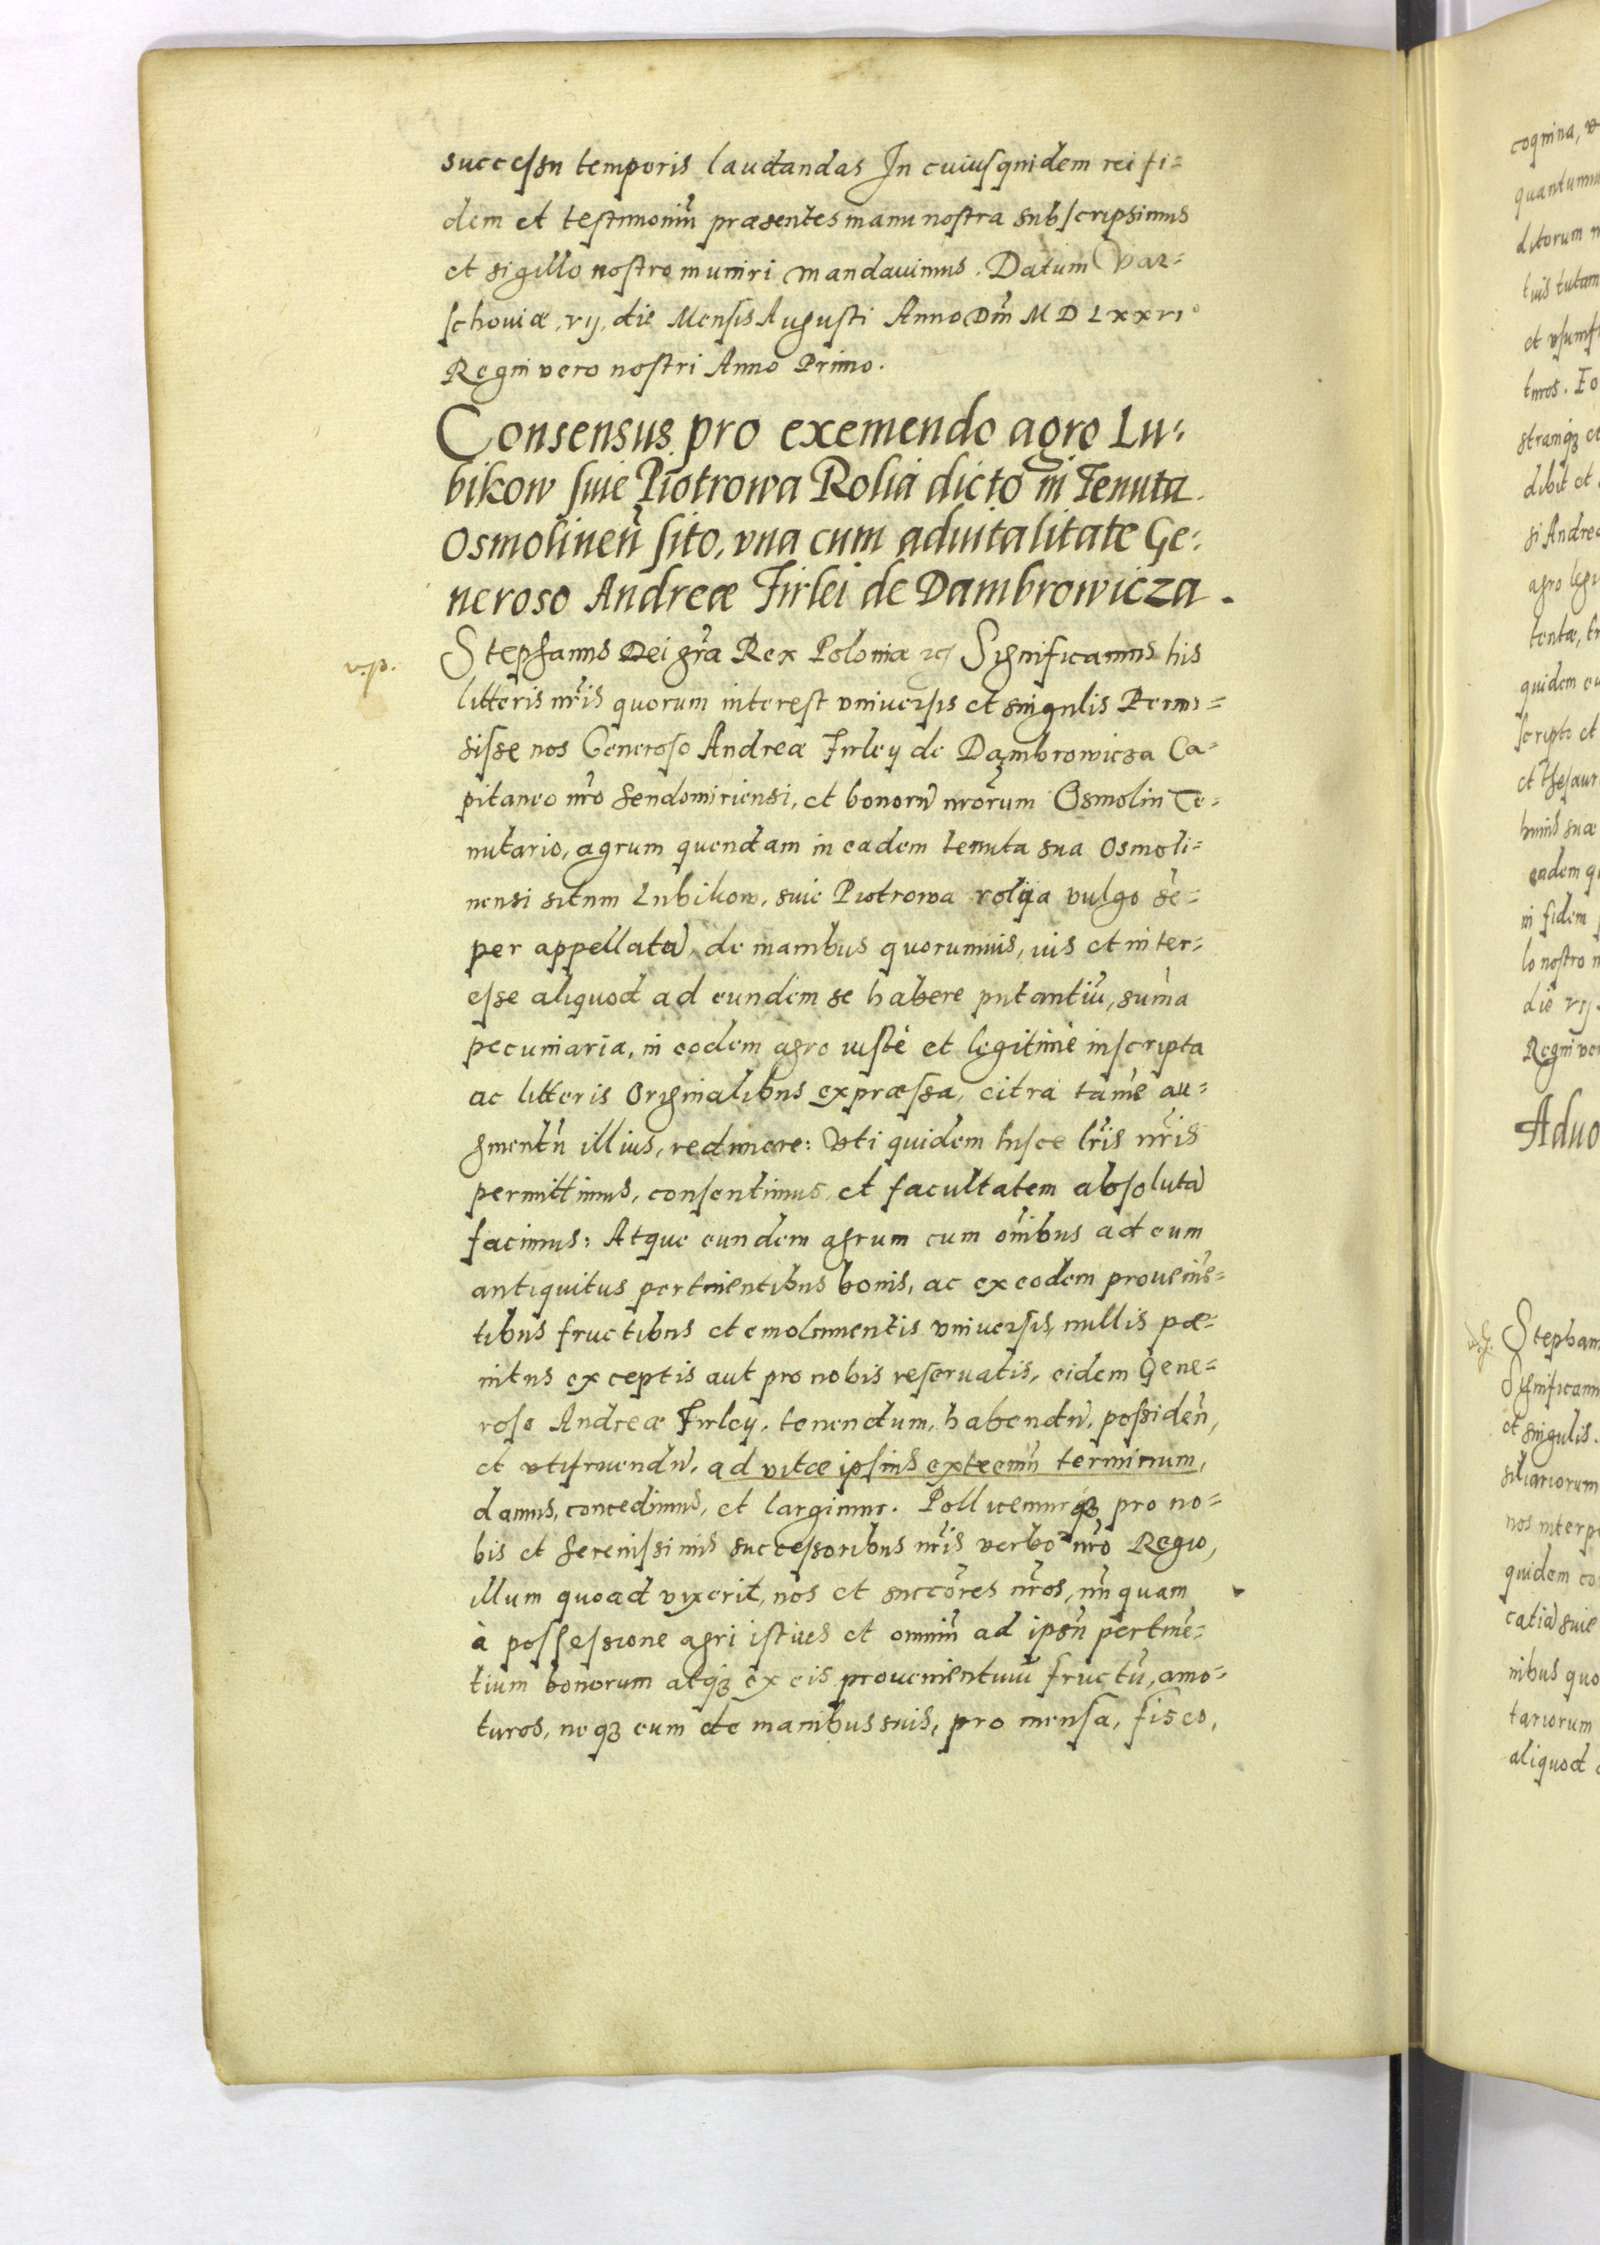 successu temporis laudandas In cuiusquidem rei fi=
dem et testimoniũ præsentes manu nostra subscripsimus
et sigillo nostro muniri mandauimus. Datum Var=
schouiæ, vij, die Mensis Augusti Anno Dñi M D LXXVI°
Regni vero nostri Anno Primo.
Consensus pro exemendo agro Lu=
bikow siue Piotrowa Rolia dicto in Tenuta
Osmolineñ sito, vna cum aduitalitate Ge=
neroso Andreæ Firlei de Dambrowicza.
v.p.
Stephanus Dei gr̃a Rex Poloniæ etc̃ Significamus his
litteris nr̃is quorum interest vniuersis et singulis Permi=
sisse nos Generoso Andreæ Firley de Dambrowicza Ca=
pitaneo nr̃o Sendomiriensi, et bonorũ nr̃orum Osmolin Te=
nutario, agrum quendam in eadem tenuta sua Osmoli=
nensi situm Lubikow, siue Piotrowa rolija vulgo sẽ=
per appellatã, de manibus quorumuis, ius et inter=
esse aliquod ad eundem se habere putantiũ, sum̃a
pecuniaria, in eodem agro iustè et legitimè inscripta
ac litteris Originalibus expræssa, citra tamẽ au=
gmentũ illius, redimere: Vti quidem hisce lr̃is nr̃is
permittimus, consentimus et facultatem absolutã
facimus: Atque eundem agrum cum om̃ibus ad eum
antiquitus pertinentibus bonis, ac ex eodem prouenie͂=
tibus fructibus et emolumentis vniuersis, nullis pæ=
nitus exceptis aut pro nobis reseruatis, eidem Gene=
roso Andreæ Firley, tenendum, habendũ, possideñ,
et vtifruendũ, ad vitæ ipsius extremũ terminum,
damus, concedimus, et largimur. Pollicemurqȝ pro no=
bis et Serenissimis successoribus nr̃is verbo nr̃o Regio,
illum quoad vixerit, nos et succõres nr̃os, nũquam
à possessione agri istius et omniũ ad ipsũ pertinẽ=
tium bonorum atqȝ ex eis prouenientiuũ fructũ, amo=
turos, neqȝ eum de manibus suis, pro mensa, fisco,